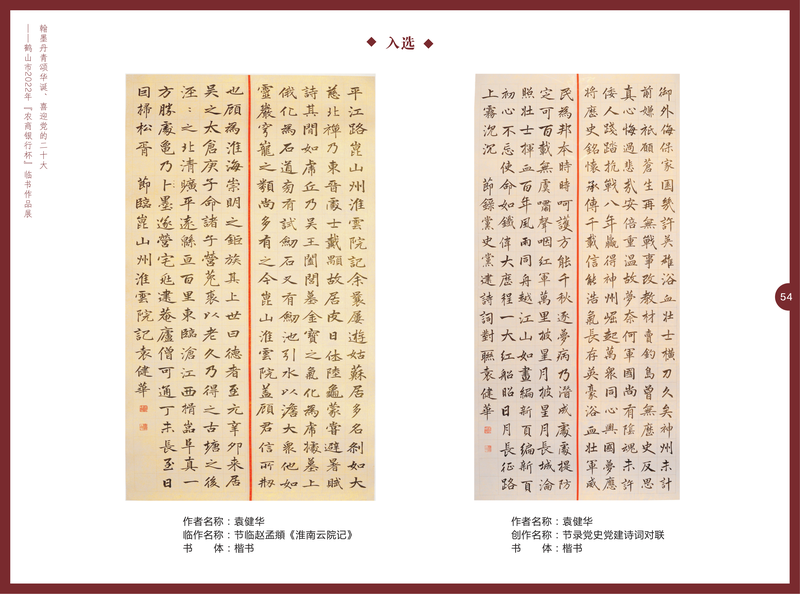 翰墨丹青颂华诞，喜迎党的二十大
——鹤山市2022年『农商银行杯』临书作品展
入选
平江路崑山州淮雲院記余曩屢遊姑蘇居多名刹如大
慈北禪乃東晉處士戴顒故居皮日休陸龜蒙嘗避暑賦
詩其間如虎丘乃吳王闔閭墓金寶之氣化為虎據墓上
俄化為石道南有試劒石又有劒池引水以濟大衆他如
靈巖穹窿之類尚多有之今崑山淮雲院蓋顧君信所剏
也顧為淮海崇明之鉅族其上世曰德者至元辛卯来居
吳之太倉庚子命諸子營菟裘以老久乃得之古塘之後
涇:之北清曠平遠緜亘百里東臨滄江西揖嵓阜真一
方勝處龜乃卜墨遂營宅迤遺菴廬僧可通丁未長至日
因掃松胥 節臨崑山州淮雲院記袁健華
御外侮保家國幾許英雄浴血壯士橫刀久矣神州未計
前嫌祇願蒼生再無戰事改教材賣釣島曾無歷史反思
真心悔過悲哉安倍重温故夢奈何軍國尚有陰魂未許
倭人踐踏抗戰八年贏得神州崛起萬衆同心興國夢應
將歷史銘懷承傳千載信能浩氣長存英豪浴血壯軍威
民為邦本時時呵護方能千秋逐夢病乃潛成處處提防
定可百載無虞嘯聲咽紅軍萬里披星月披星月長城淪
照壯士揮血百年風雨同舟越江山如畫編新頁編新頁
初心不忘使命如鐵偉大歷程一大紅船昭日月長征路
上霧沉沉 節錄黨史黨建詩詞對聯袁健華
54
作者名称：袁健华
临作名称：节临赵孟頫《淮南云院记》
书　　体：楷书
作者名称：袁健华
创作名称：节录党史党建诗词对联
书　　体：楷书